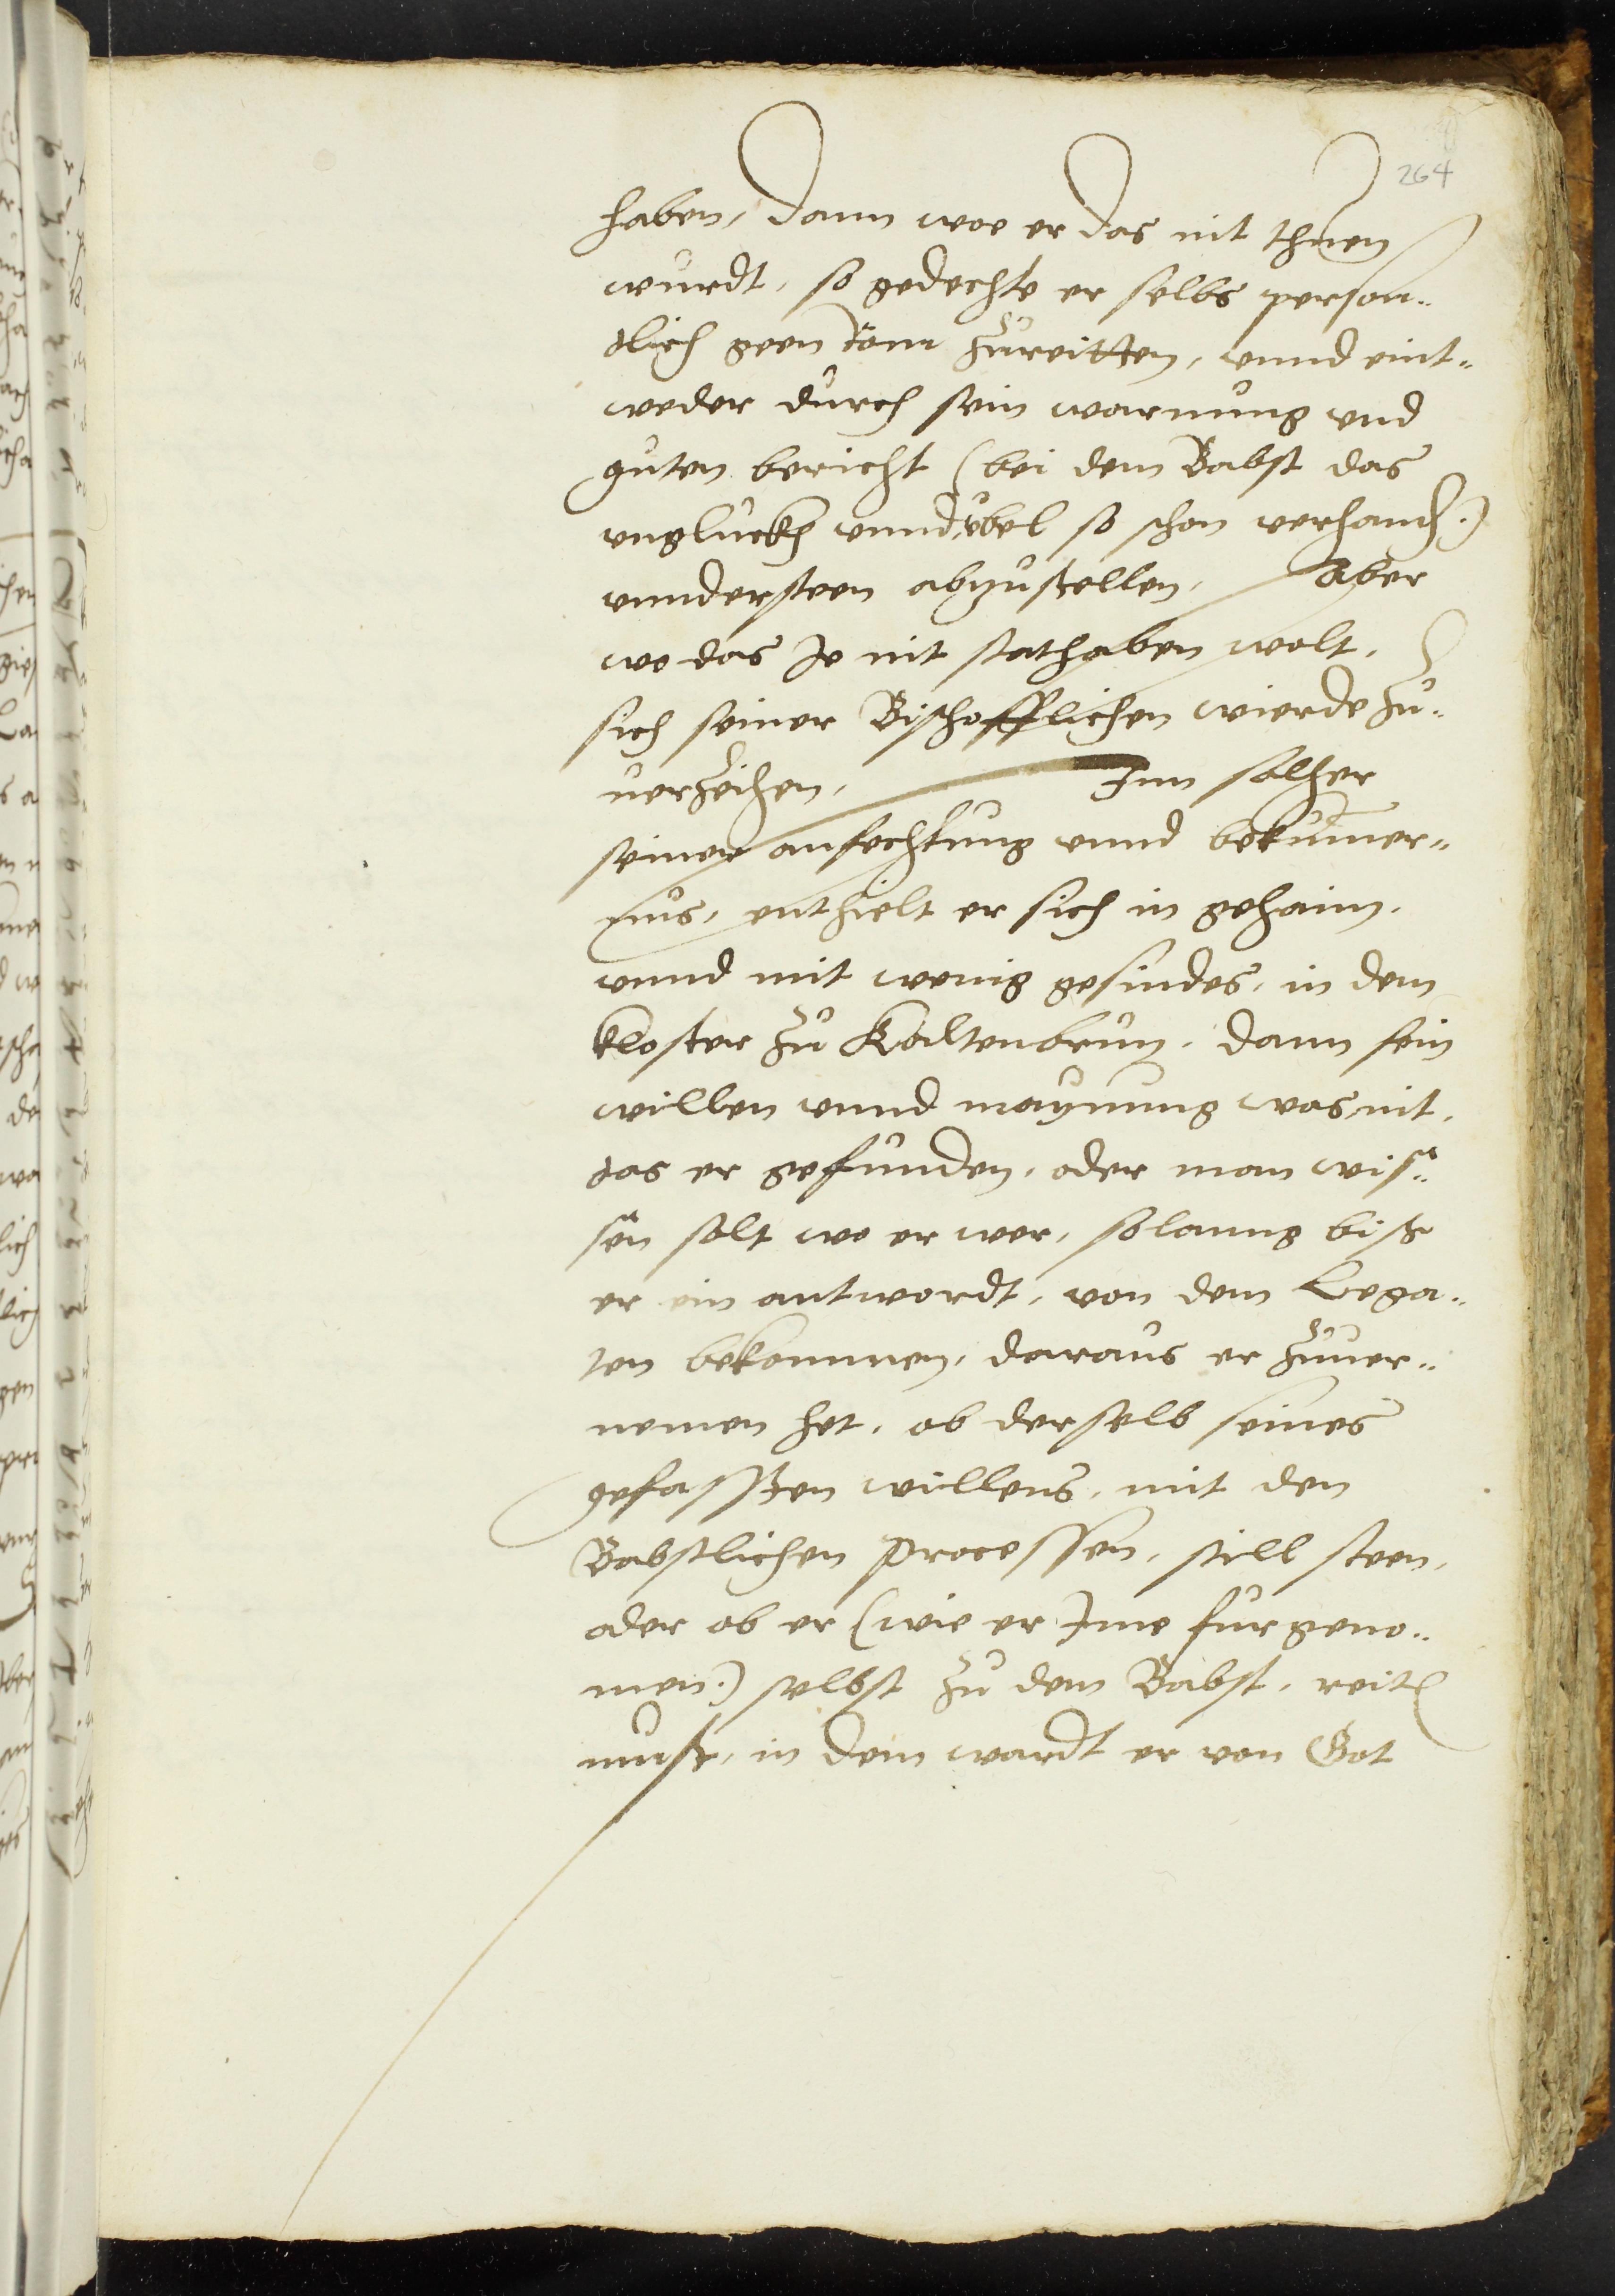 264
haben, dann woe er das nit thuen
wurdt, so gedechte er selbs person-
dlich geen Rom zureitten, unnd eint-
weder durch sein warnung und
guten bericht (bei dem Babst das
unglückh unnd übel so schon verhandh.)
unndersteen abzustellen, Aber
wo das Je nit stathaben wolt,
sich seiner Bischofflichen wierde zu-
uerzeihen, Inn solher
seiner anfechtung unnd bekümer-
nus, enthielt er sich in gehaim,
unnd mit wenig gesindes, in dem
kloster zu Kaltenbrun, dann sein
willen unnd maynung was nit,
das er gefunden, oder man wiss-
sen solt wo er wer, solanng biß
er ein antwordt, von dem Lega-
ten bekommen, daraus er zuuer-
nemen het, ob derselb seines
gefassten willens, mit den
Babstlichen processen, still steen,
oder ob er (wie er Ime fürgeno-
men.) selbst zu dem Babst, reiten
must, in dem wardt er von Got